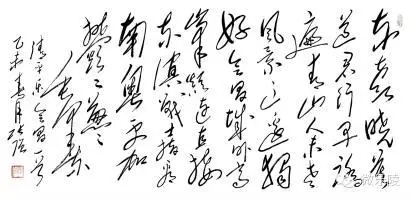 东方欲晓莫
道君行早踏
遍青山人未老
风景这边独
好会昌城外高
峰颠连直接
东溟战士指看
南粤更加
郁郁葱葱
清平乐会昌一首
乙未春月